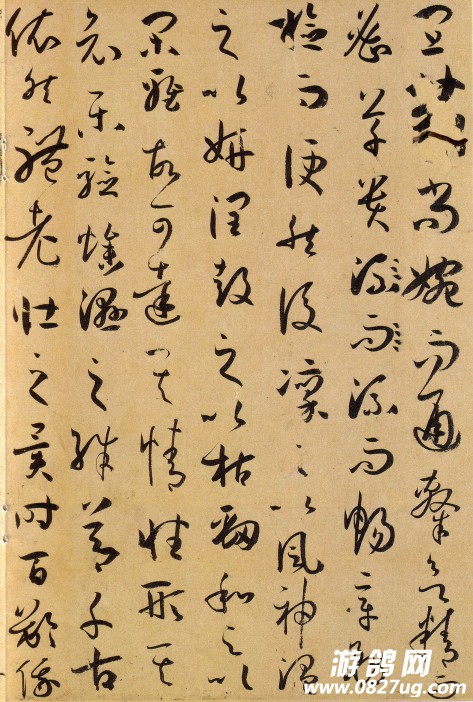 宜篆尚婉而通隸欲精而
密草貴流而流而暢章務
檢而便然後凜之以風神溫
之以妍潤鼓之以枯勁和之以
閑雅故可達其情性形其
哀樂驗燥濕之殊節千古
依然體老壯之異時百齡俄
游鸽网
www.0827ug.com